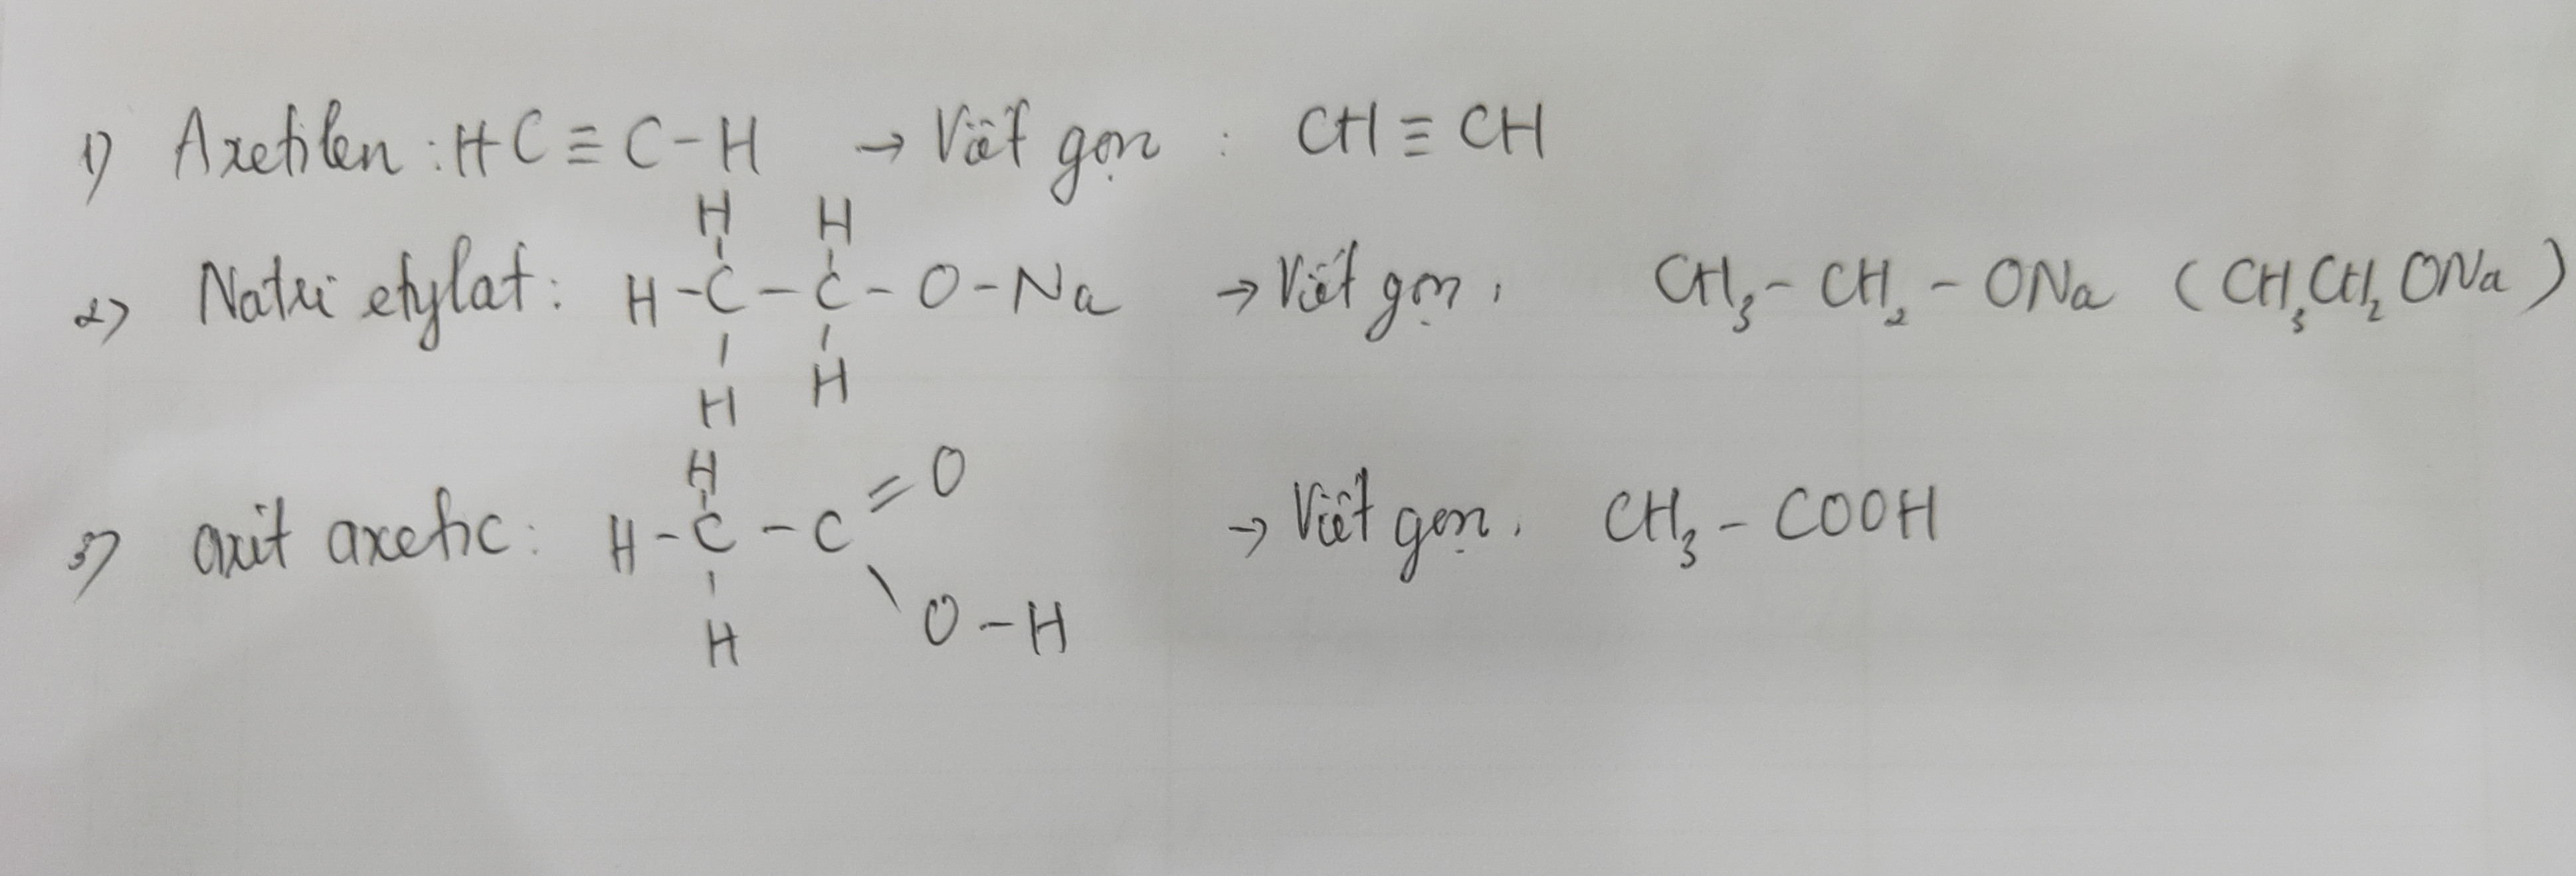 1) Axetilen : HC ≡ C - H → Viết gọn : CH ≡ CH
H H
2) Natri etylat : H - C - C - O - Na → Viết gọn : CH₃ - CH₂ - ONa (CH₃CH₂ONa)
H H
H O
3) axit axetic : H - C - C → Viết gọn : CH₃ - COOH
H O - H